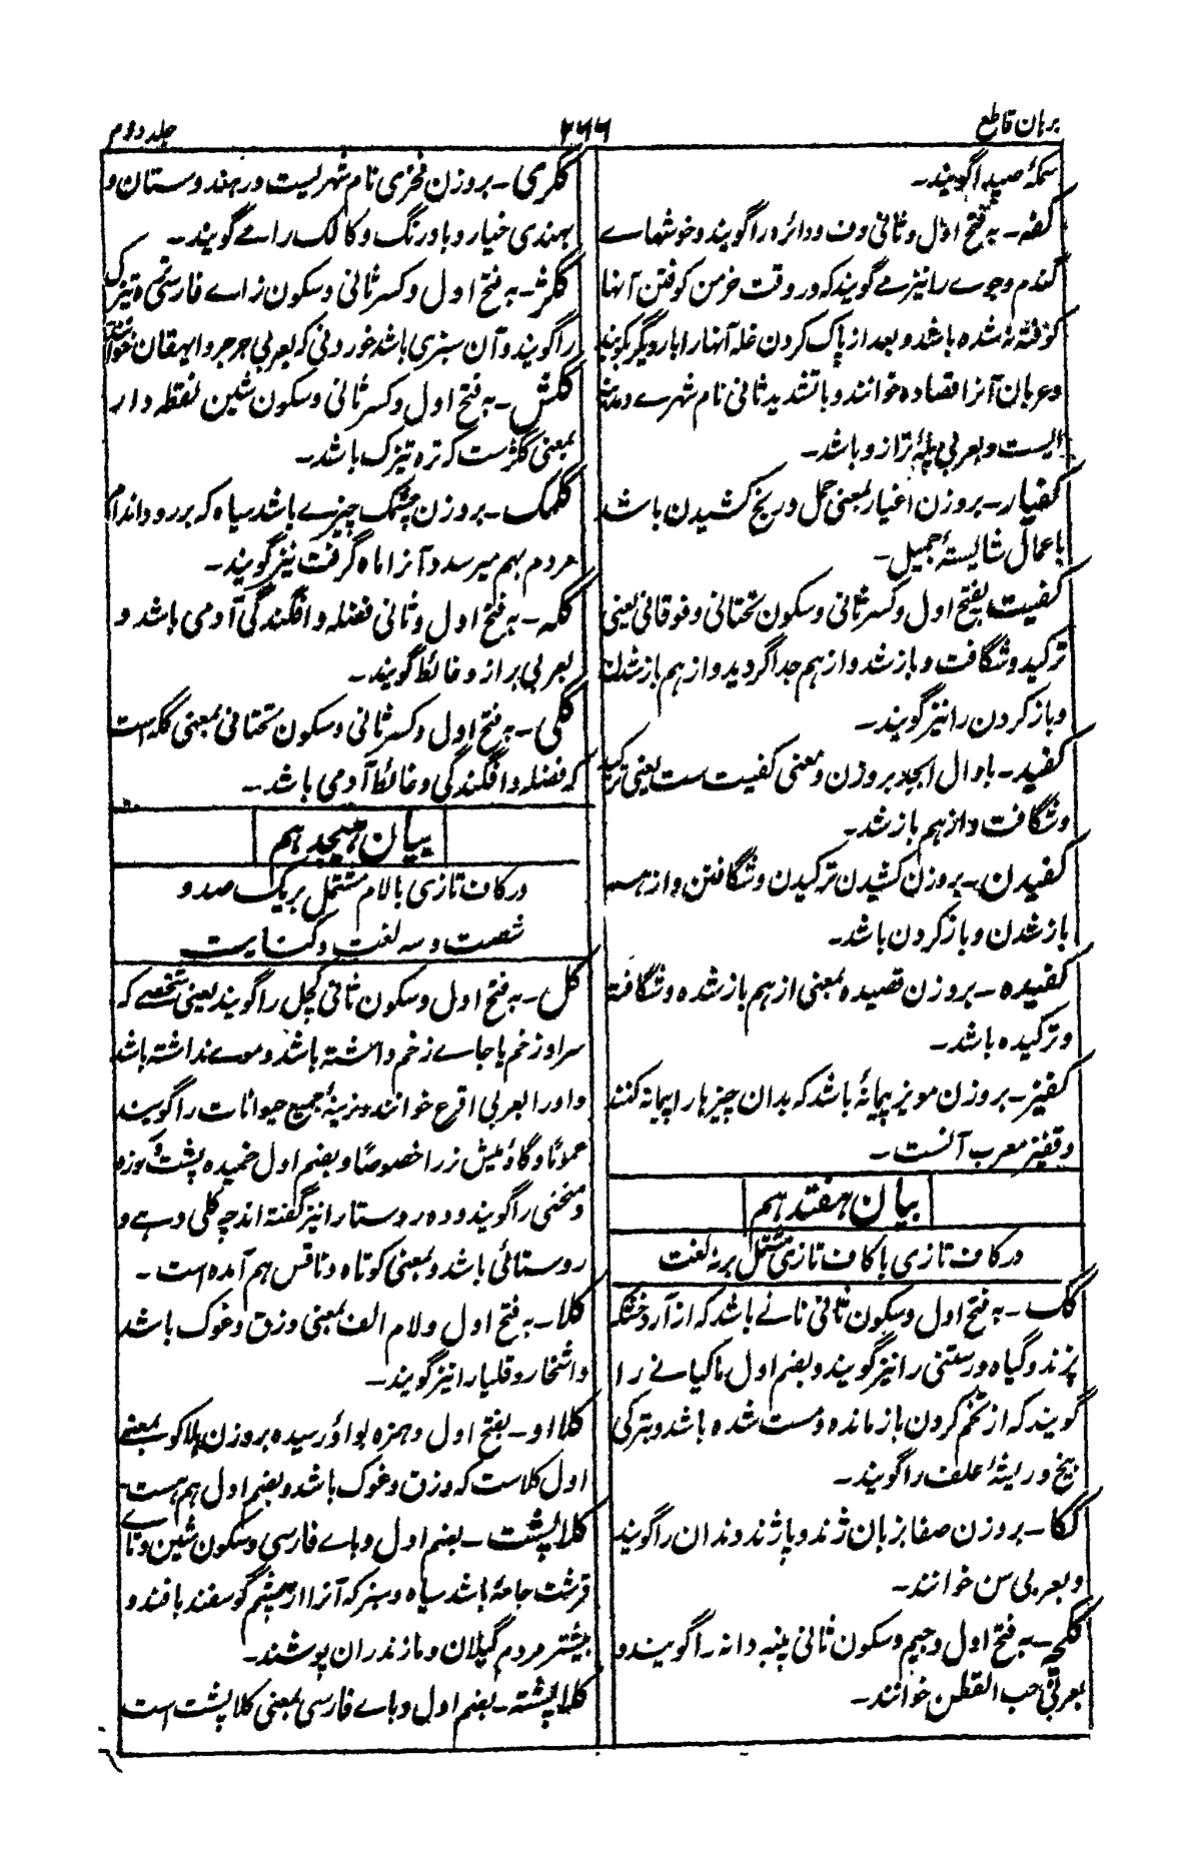 برہان قاطع
۲۶۶
جلد دوم
سکۂ صید گویند۔
کفہ۔ بہ فتح اول وثانی دف ودائره را گویند وخوشہاے
گندم وجوے را نیز مے گویند کہ در وقت خرمن کوفتن آنہا
کوفتہ نہ شده باشد وبعد از پاک کردن غلہ آنہا را بار دیگر کوبند
وعربان آنرا قصاده خوانند وبا تشدید ثانی نام شہرے ومدینہ
ایست وبعربی پلۂ ترازو باشد۔
کفیار۔ بروزن اغیار بمعنی حمل ورنج کشیدن باشد
باعمال شایستۂ جمیل۔
کفیت۔ بفتح اول وکسر ثانی وسکون تحتانی وفوقانی یعنی
ترکید وشگافت وباز شد واز ہم جدا گردید واز ہم باز شدن
وباز کردن را نیز گویند۔
کفید۔ بادال ابجد بروزن ومعنی کفیت ست یعنی ترکید
وشگافت واز ہم باز شد۔
کفیدن۔ بروزن کشیدن ترکیدن وشگافتن واز ہم
باز شدن وباز کردن باشد۔
کفیده۔ بروزن قصیده بمعنی از ہم باز شده وشگافتہ
وترکیده باشد۔
کفیز۔ بروزن مویز پیمانۂ باشد کہ بدان چیزہا را پیمانہ کنند
وقفیز معرب آنست۔
بیان ہفتدہم
در کاف تازی باکاف تازی مشتمل بر نہ لغت
کک۔ بہ فتح اول وسکون ثانی نانے باشد کہ از آرد خشکہ
پزند وگیاه ورستنی را نیز گویند وبضم اول ماکیانے را
گویند کہ از تخم کردن باز مانده ومست شده باشد وبترکی
بیخ وریشۂ علف را گویند۔
ککا۔ بروزن صفا بزبان ژند وپاژند دندان را گویند
وبعربی سن خوانند۔
ککجہ۔ بہ فتح اول وجیم وسکون ثانی پنبہ دانہ را گویند و
بعربی حب القطن خوانند۔
ککری۔ بروزن فخری نام شہریست در ہندوستان و
بہندی خیار وبادرنگ وکالک را مے گویند۔
ککز۔ بہ فتح اول وکسر ثانی وسکون زاے فارسی تره تیزک
را گویند وآن سبزی باشد خوردنی کہ بعربی جرجیر وایہقان خوانند
ککش۔ بہ فتح اول وکسر ثانی وسکون شین نقطہ دار
بمعنی ککژست کہ تره تیزک باشد۔
ککمک۔ بروزن چشمک چیزے باشد سیاه کہ بر رو واندام
مردم بہم میرسد وآنرا ماه گرفت نیز گویند۔
ککہ۔ بہ فتح اول وثانی فضلہ وافگندگی آدمی باشد و
بعربی براز وغائط گویند۔
ککی۔ بہ فتح اول وکسر ثانی وسکون تحتانی بمعنی ککہ است
کہ فضلہ وافگندگی وغائط آدمی باشد۔
بیان ہیجدہم
در کاف تازی بالام مشتمل بر یک صد و
شصت وسہ لغت وکنایت
کل۔ بہ فتح اول وسکون ثانی کچل را گویند یعنی شخصے کہ
سر او زخم یا جاے زخم داشتہ باشد وموے نداشتہ باشد
واو را بعربی اقرع خوانند ونرینۂ جمیع حیوانات را گویند
عموماً وگاومیش نر را خصوصاً وبضم اول خمیده پشت وکوزه
ومنحنی را گویند وده روستا را نیز گفتہ اند چہ کلی دہے و
روستائی باشد وبمعنی کوتاه وناقص ہم آمده است۔
کلا۔ بہ فتح اول ولام الف بمعنی وزق وغوک باشد
واشخار وقلیا را نیز گویند۔
کلااو۔ بفتح اول وہمزه بواو رسیده بروزن ہلاکو بمعنے
اول کلاست کہ وزق وغوک باشد وبضم اول ہم ہست
کلاپشت۔ بضم اول وباے فارسی وسکون شین وتاے
قرشت جامۂ باشد سیاه وسبز کہ آنرا از پشم گوسفند بافند و
بیشتر مردم گیلان ومازندران پوشند۔
کلاپشتہ۔ بضم اول وباے فارسی بمعنی کلاپشت است